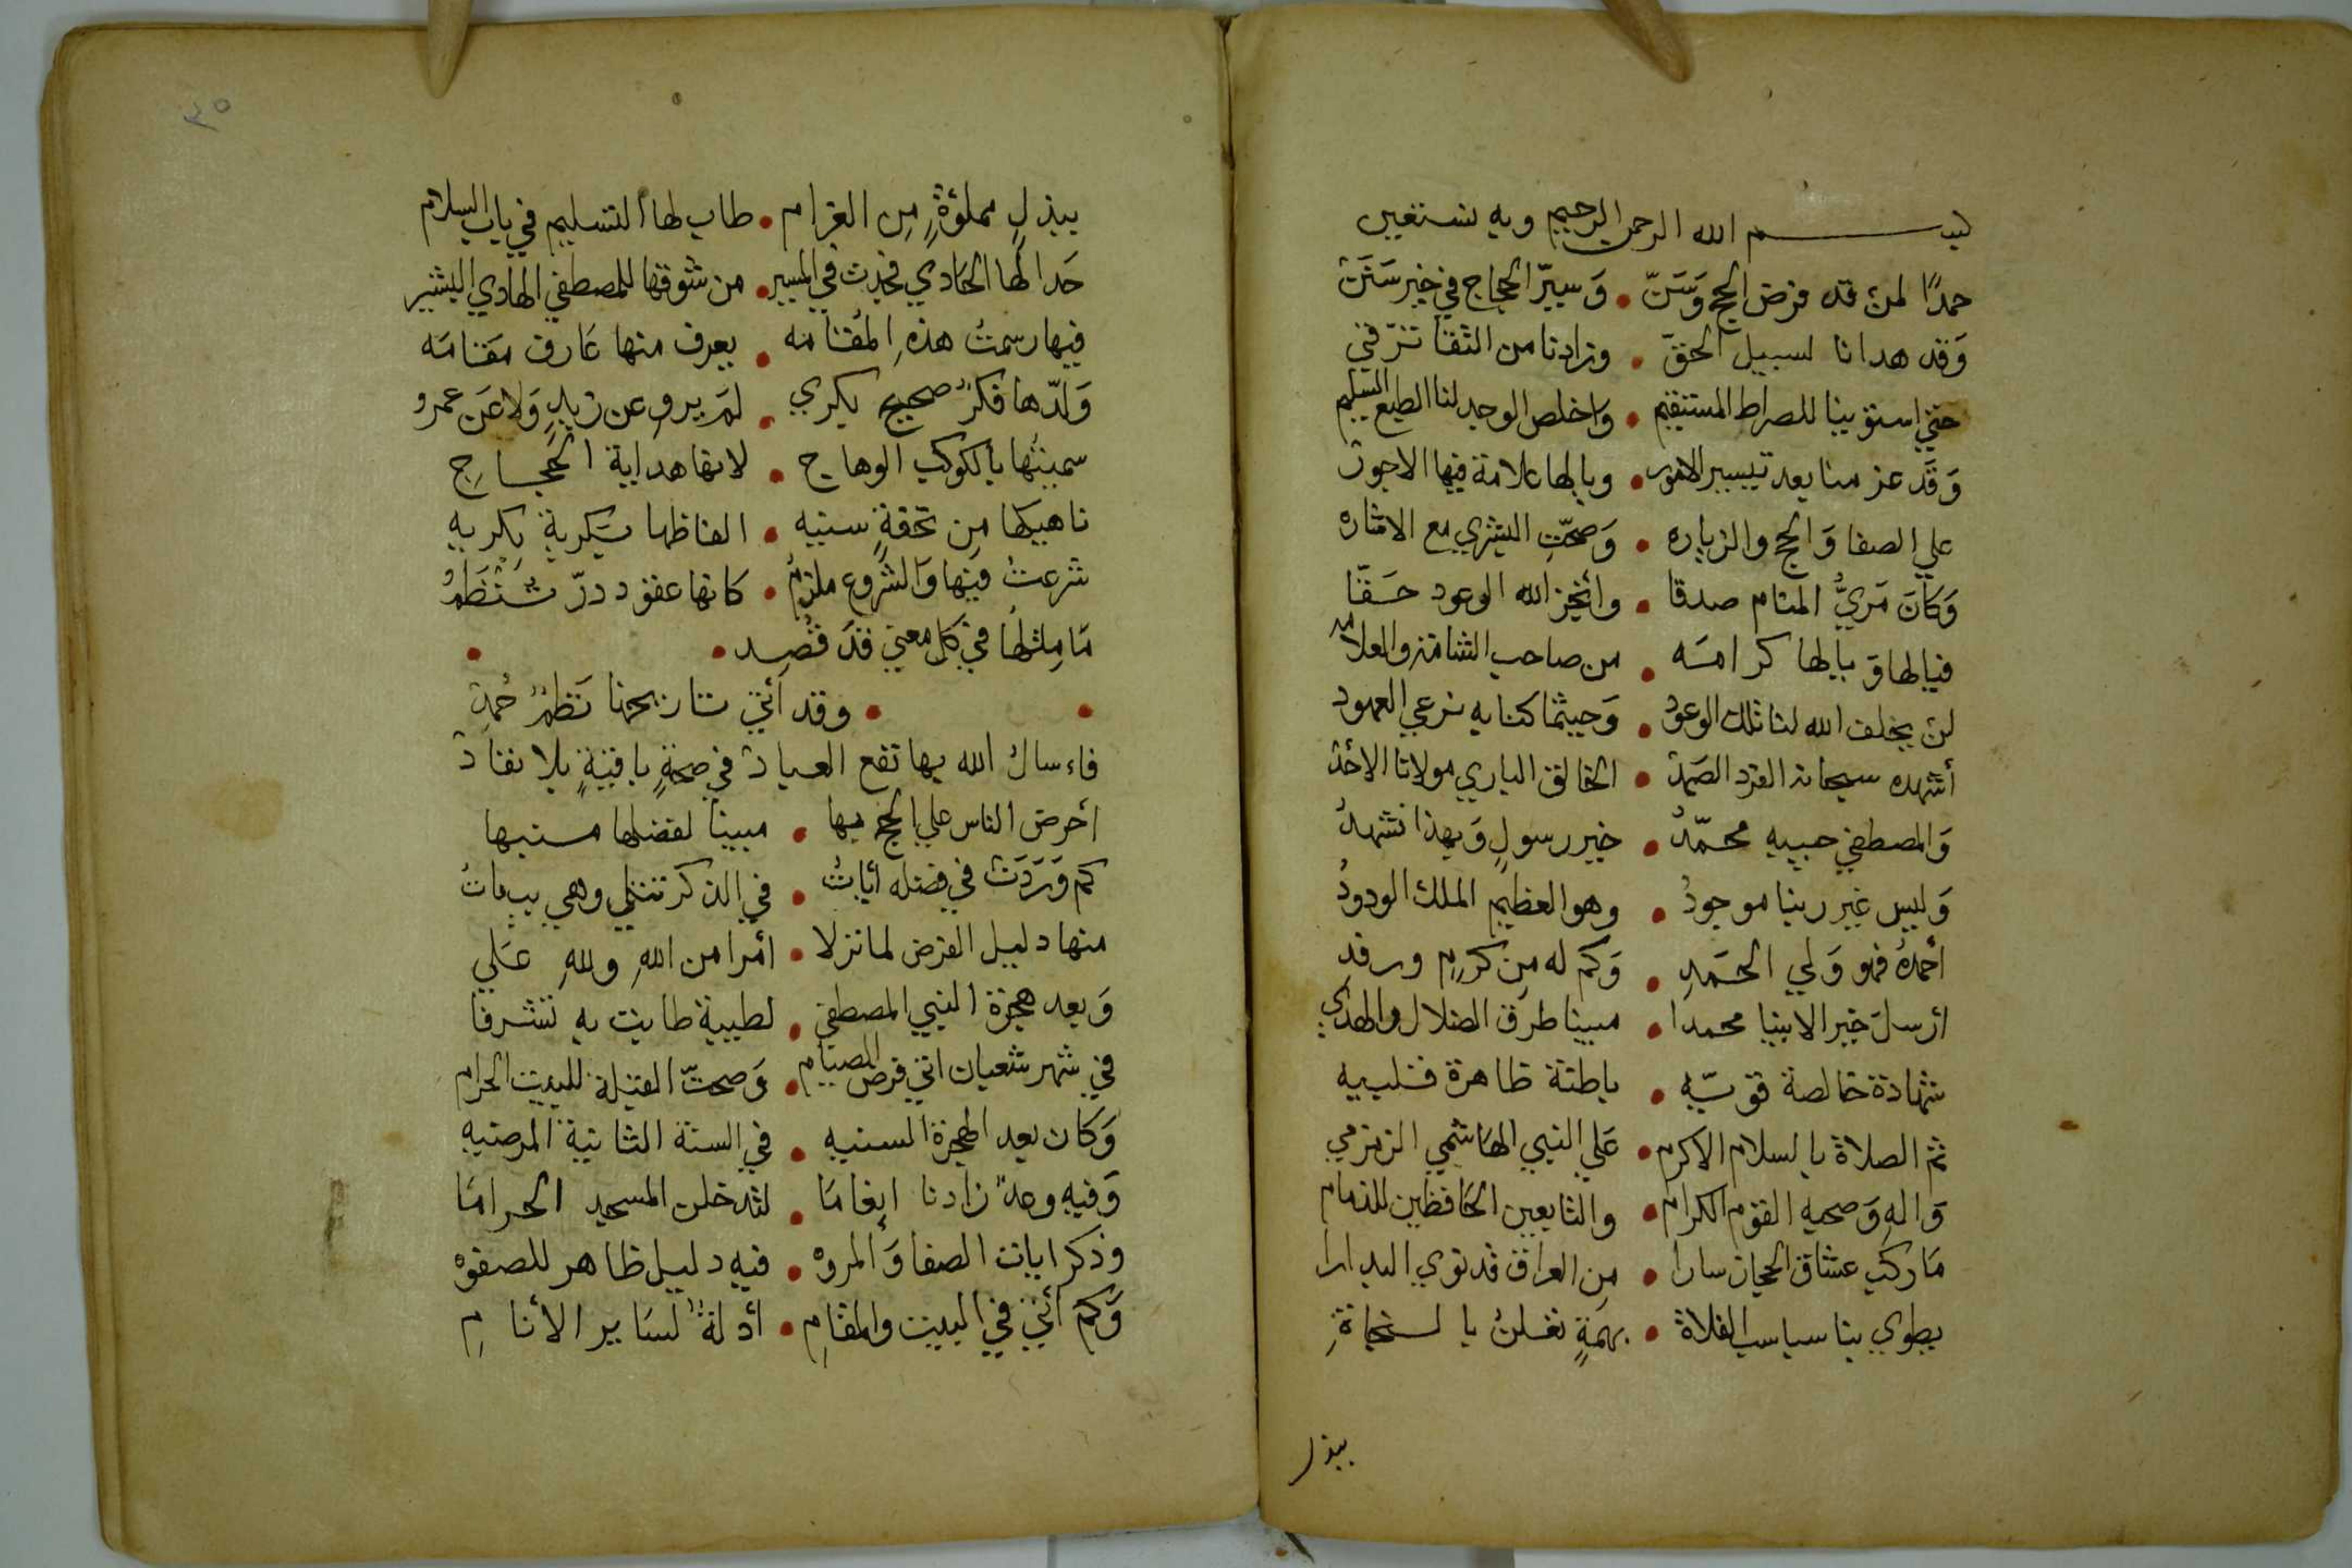 بسم الله الرحمن الرحيم وبه نستعين
حمدًا لمن قد فرض الحج وَسَنّ • وَسيّر الحجاج في خير سَنَن
وَقد هدانا لسبيل الحقّ • وزادنا من التقا ترقي
حتي استوينا للصراط المستقيم • واخلص الوجد لنا الطبع السليم
وَقَد عزمنا بعد تيسير الامور • ويالها علامة فيها الاجور
علي الصفا وَالحج والزياره • وَصحّتِ البشري مع الاشاره
وَكانَ مَريُّ المنام صدقا • وأنجز الله الوعود حَقّا
فيالها وَيالها كرامَه • من صاحب الشامة والعلامه
لن يخلف الله لنا تلك الوعود • وَحيثما كنا به نرعي العهود
أشهده سبحانه الفرد الصَمدْ • الخالق الباري مولانا الأحدْ
وَالمصطفي حبيبه محمّدُ • خير رسولٍ وَبهذا نشهدُ
وَليس غير ربنا موجودُ • وهو العظيم الملك الودودُ
أحمدهُ فهو وَلي الحَمدِ • وَكم له من كرمٍ ورفدِ
أرسلَ خير الانبيا محمدا • مبينا طرق الضلال والهدي
شهادة خالصة قويّه • باطنة ظاهرة قلبيه
ثم الصلاة بالسلام الاكرم • عَلي النبي الهاشمي الزمزمي
وَالهِ وَصحبه القوم الكرام • والتابعين الحافظين للذمام
مَا ركب عشاق الحجاز سارا • من العراق قد نوي البدارا
يطوي بنا سباسب الفلاة • بهمَةٍ تعلن بالنجاةِ
ببذل
٣٥
ببذلٍ مملؤةٍ مِن الغرام • طاب لها التسليم في باب السلام
حَدا لها الحَادي فجدت في المسير • من شوقها للمصطفي الهادي البشير
فيها رسمتُ هذهِ المقامه • يعرف منها عَارف مَقامَه
وَلدّها فكرٌ صحيح بكري • لمَ يروِ عن زيدٍ وَلا عَن عمرو
سميتُها بالكوكب الوهاج • لانها هداية الحُجاجِ
ناهيكها مِن تحفةٍ سنيه • الفاظها سكرية بكريه
شرعتُ فيها وَالشروع ملزمُ • كانها عقود درّ تُنْظَمُ
مَا مِثلها في كل معني قد قُصِد •
• وقد أتي تاريحها نَظمٌ حُمِدْ
فاءسال الله بها نفع العباد في صحةٍ باقيةٍ بلا نفاد
أحرض الناس علي الحج بها • مبينا لفضلها منبها
كم وَرَدَتْ في فضله أياتُ • في الذكر تتلي وهي بيناتُ
منها دليل الفرض لما نزلا • أمرا من اللهِ وللهِ عَلي
وَبعد هجرة النبي المصطفي • لطيبة طابت به تشرفا
في شهر شعبان اتي فرض الصيام • وَصحتّ القبلة للبيت الحرام
وَكان بعد الهجرة السنيه • في السنة الثانية المرضيه
وَفيه وعدٌ زادنا إنعامَا • لتدخلن المسجد الحرامَا
وذكر ايات الصفا وَالمروه • فيه دليل ظاهر للصفوه
وَكَم أتي في البيت والمقامِ • أدلةٌ لسَاير الأنامِ